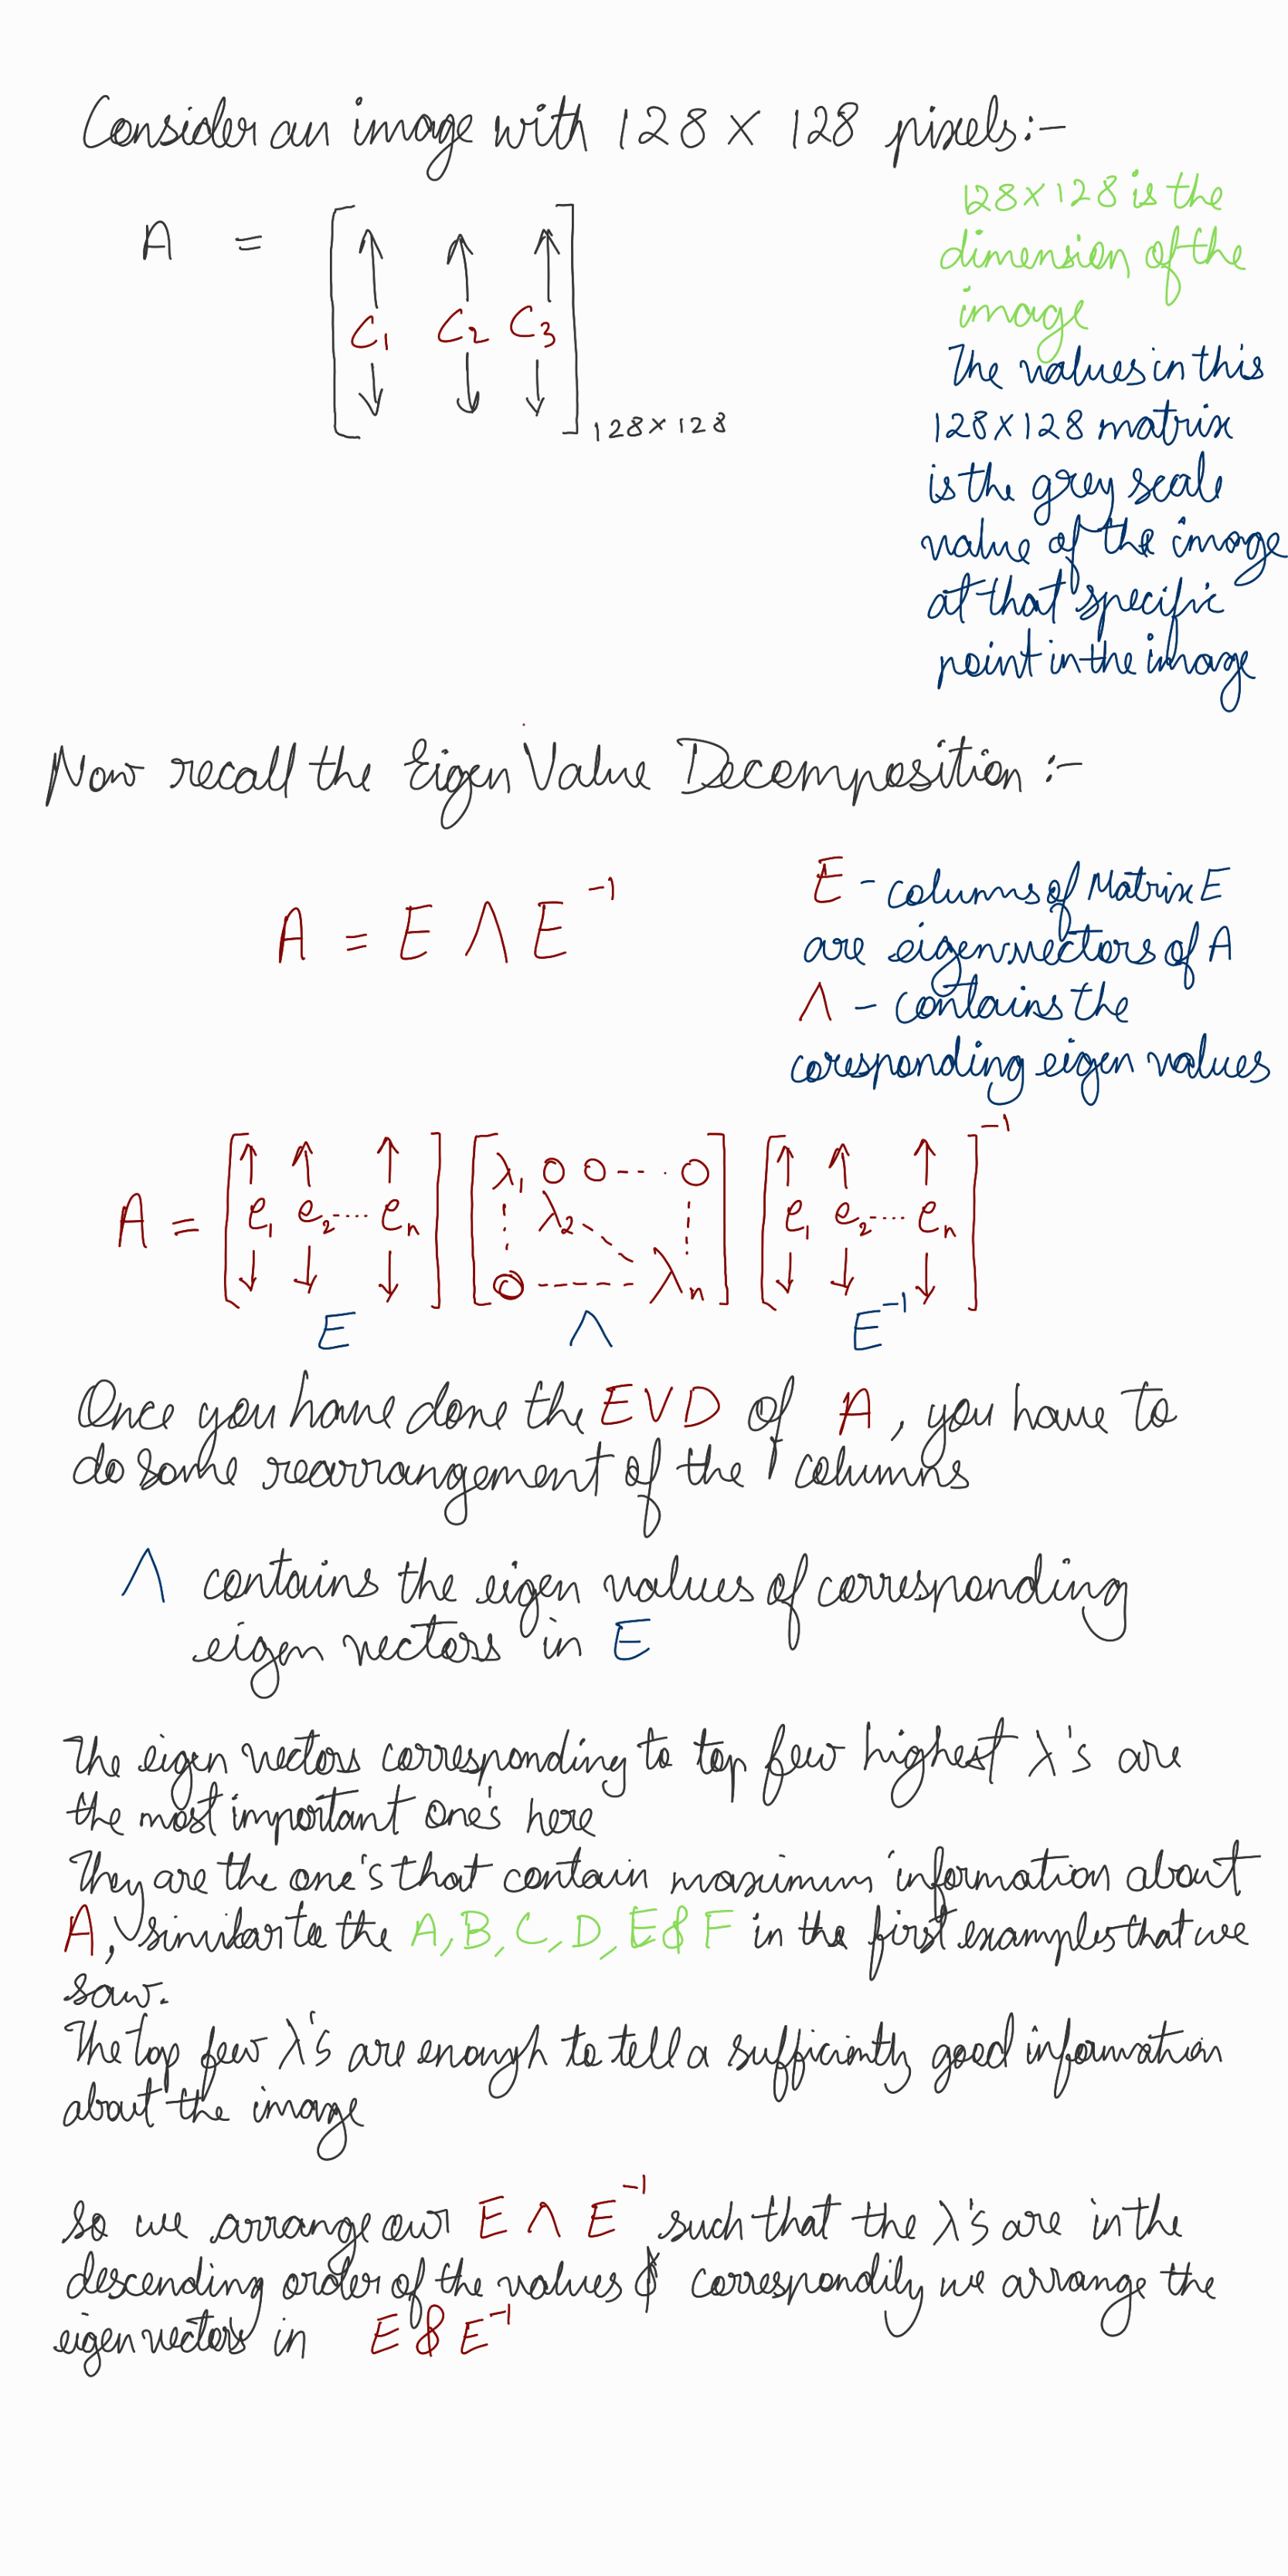 Consider an image with 128 × 128 pixels:-
128×128 is the
dimension of the
image
A = [ C₁ C₂ C₃ ] 128×128
The values in this
128×128 matrix
is the grey scale
value of the image
at that specific
point in the image
Now recall the Eigen Value Decomposition :-
A = E Λ E⁻¹
E - columns of Matrix E
are eigen vectors of A
Λ - contains the
coresponding eigen values
A = [ e₁ e₂ .... eₙ ] [ λ₁ 0 0 --- 0 λ₂ 0 ------ λₙ ] [ e₁ e₂ .... eₙ ]⁻¹
E Λ E⁻¹
Once you have done the EVD of A, you have to
do some rearrangement of the columns
Λ contains the eigen values of corresponding
eigen vectors in E
The eigen vectors corresponding to top few highest λ's are
the most important one's here
They are the one's that contain maximum information about
A, similar to the A, B, C, D, E & F in the first examples that we
saw.
The top few λ's are enough to tell a sufficiently good information
about the image
So we arrange our E Λ E⁻¹ such that the λ's are in the
descending order of the values & correspondily we arrange the
eigen vectors in E & E⁻¹